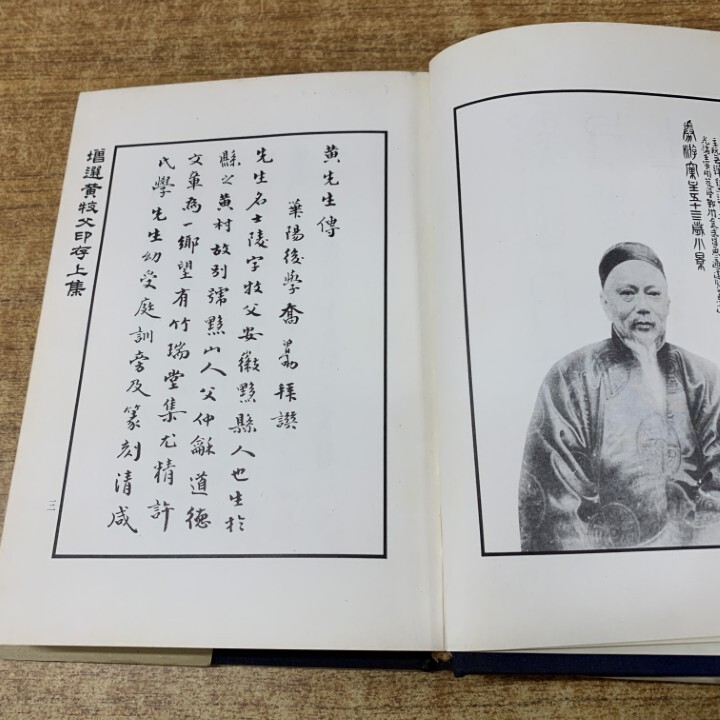 游窠主五十三歲小景
黃先生傳
華陽後學喬曾劬拜譔
先生名士陵字牧父安徽黟縣人也生於
縣之黃村故別號黟山人父仲龢道德
文章為一鄉望有竹瑞堂集尤精許
氏學先生幼受庭訓旁及篆刻清咸
增選黃牧父印存上集
三